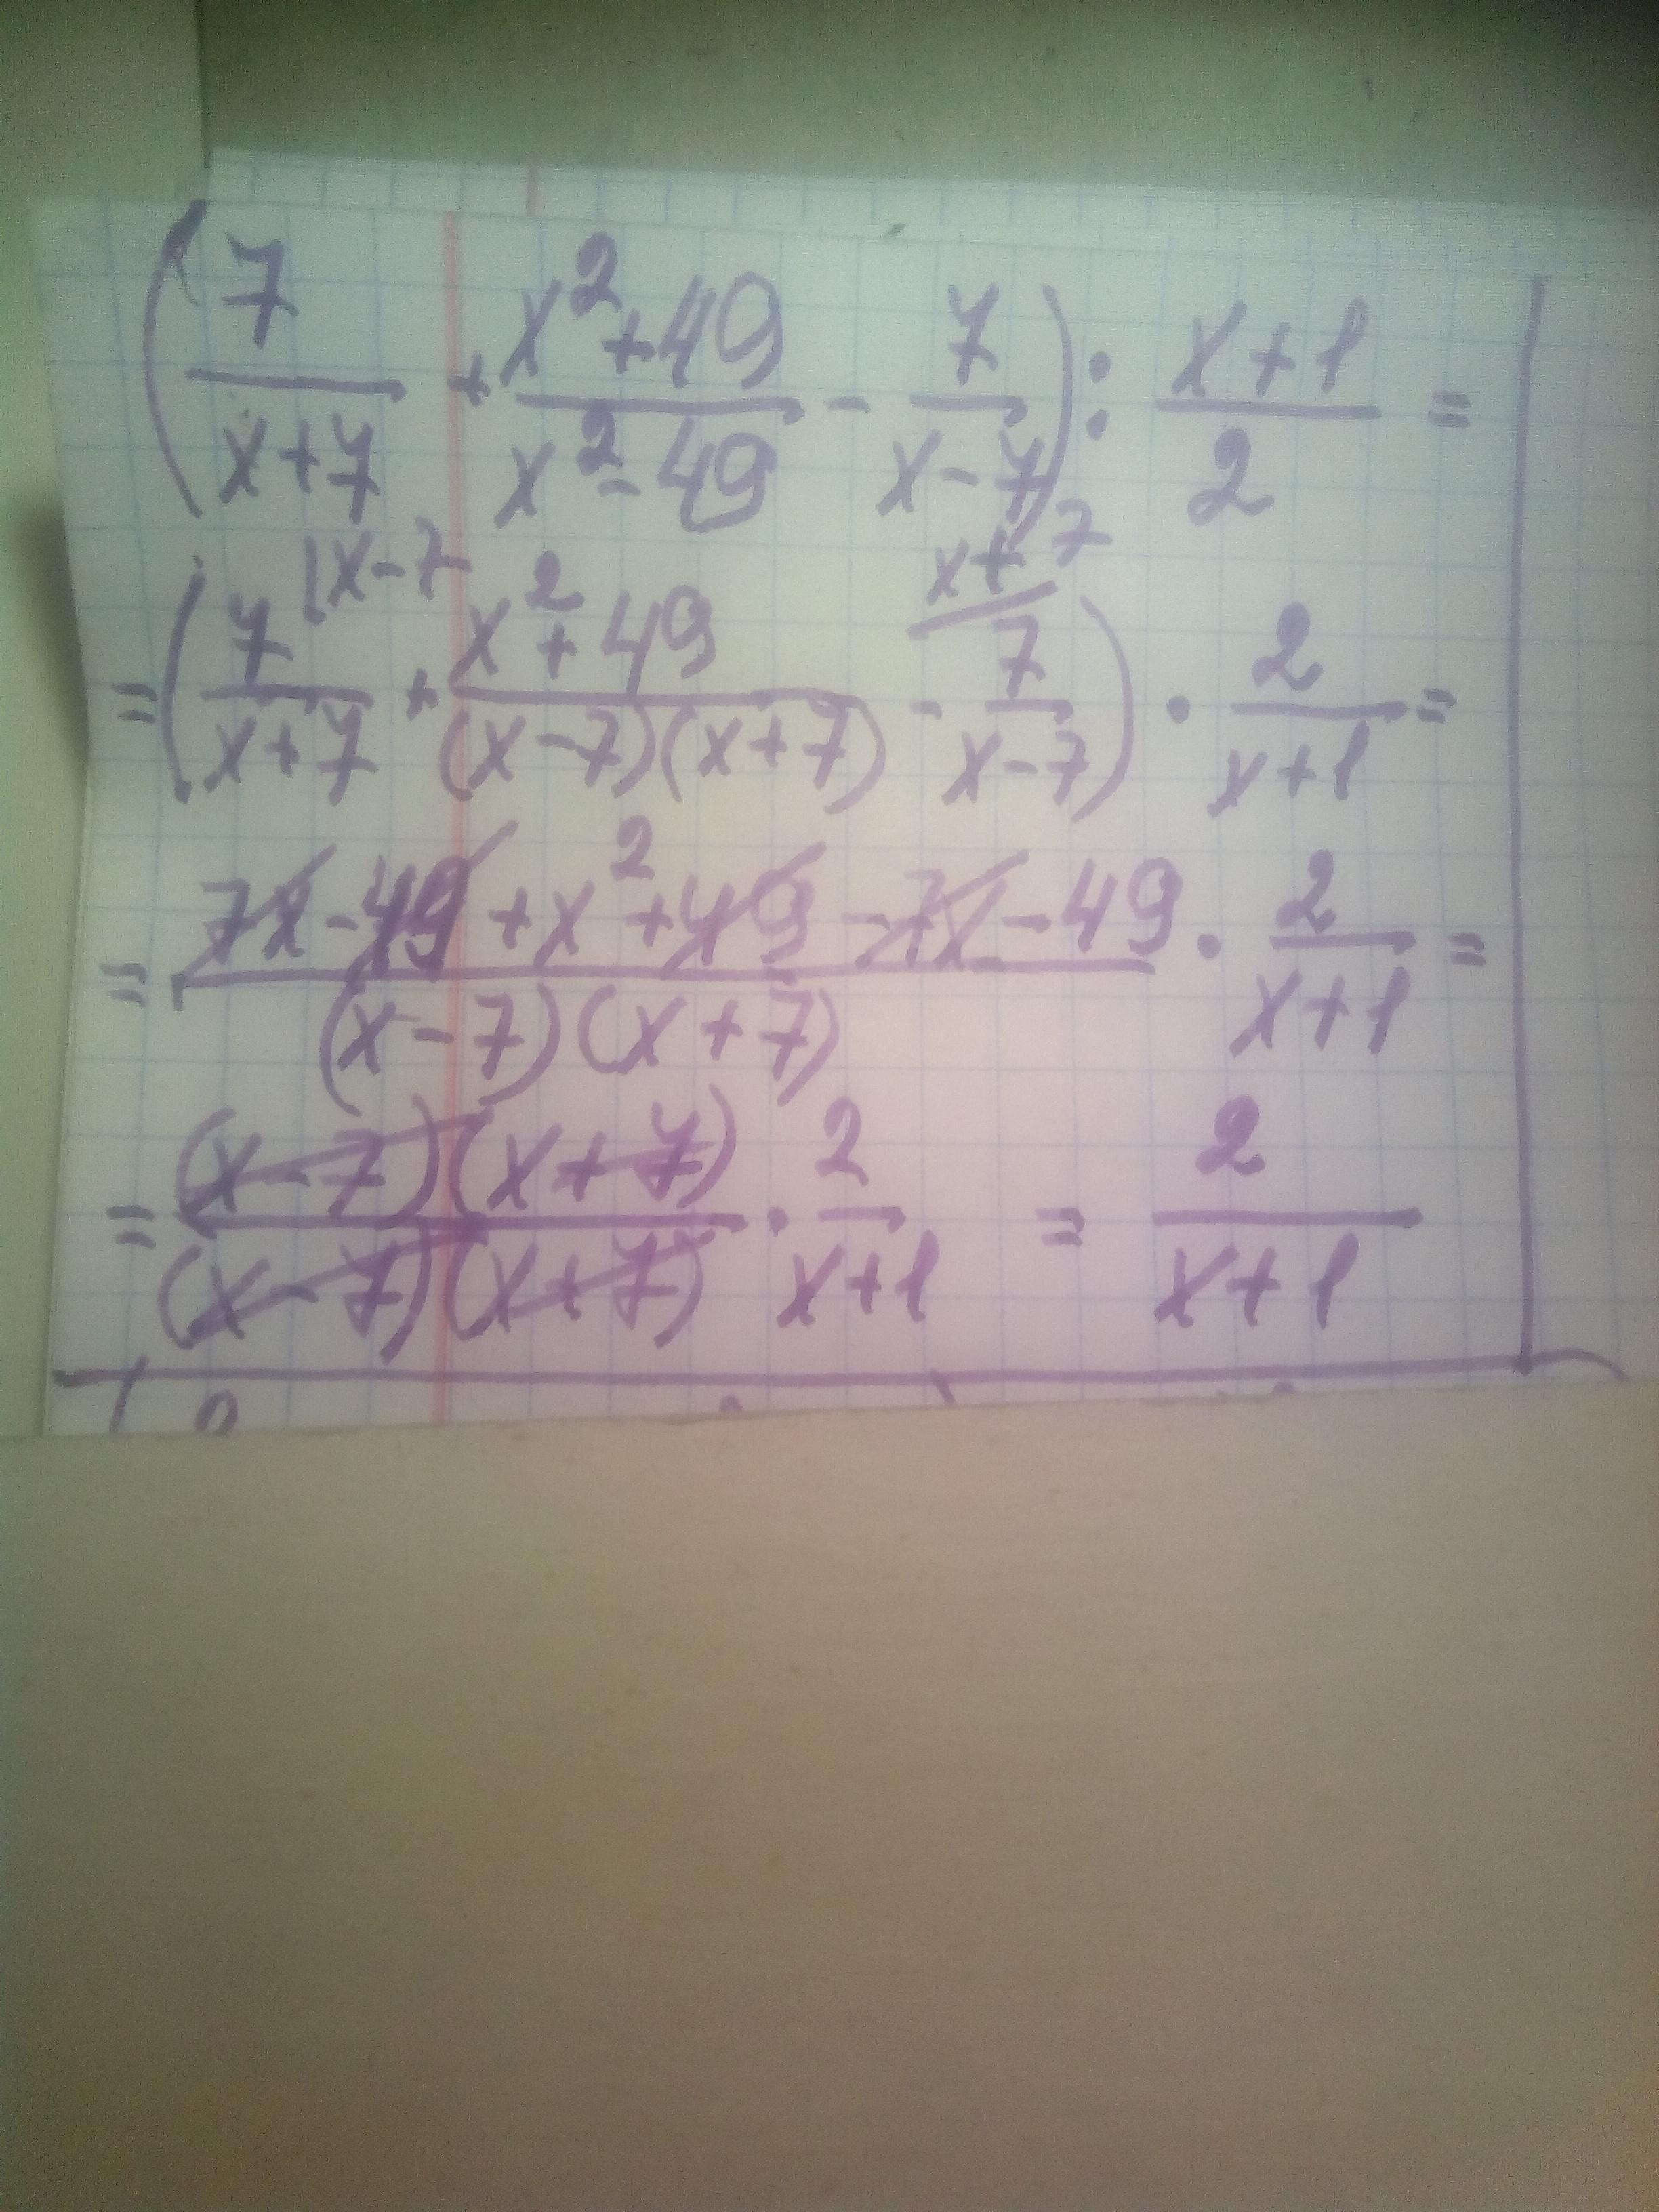 (7/(x+7) + (x²+49)/(x²-49) - 7/(x-7)) : (x+1)/2 =
= (7/(x+7) |x-7 + (x²+49)/((x-7)(x+7)) - x+7/ 7/(x-7)) · 2/(x+1) =
= (7x-49+x²+49-7x-49)/((x-7)(x+7)) · 2/(x+1) =
= ((x-7)(x+7))/((x-7)(x+7)) · 2/(x+1) = 2/(x+1)